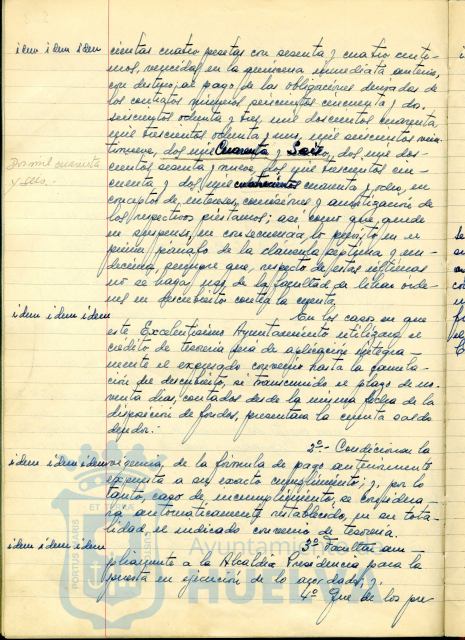 idem idem idem cientas cuatro pesetas con sesenta y cuatro cénti-
mos, vencidas en la quincena inmediata anterior,
con destino al pago de las obligaciones derivadas de
los contratos números seiscientos cincuenta y dos,
seiscientos ochenta y tres, mil doscientos cuarenta,
mil trescientos ochenta y uno, mil seiscientos vein-
tinueve, dos mil Cuarenta y Seis, dos mil dos
Dos mil cuarenta
y seis.-
cientos sesenta y nueve, dos mil trescientos cin-
cuenta y dos mil cuatrocientos cuarenta y ocho, en
conceptos de intereses, comisiones y amortización de
los respectivos préstamos; así como que quede
en suspenso, en consecuencia, lo previsto en el
primer párrafo de la cláusula séptima y un-
décima, siempre que, respecto de estas últimas
no se haga uso de la facultad de librar orde-
nes en descubierto contra la cuenta.
idem idem idem En los casos en que
este Excelentísimo Ayuntamiento utilizara el
crédito de tesorería será de aplicación íntegra-
mente el expresado convenio hasta la cancela-
ción del descubierto, si transcurrido el plazo de no-
venta días, contados desde la misma fecha de la
disposición de fondos, presentara la cuenta saldo
deudor.-
2º.- Condicionar la
idem idem idem vigencia, de la fórmula de pago anteriormente
expuesta a su exacto cumplimiento; y, por lo
tanto, caso de incumplimiento, se considera-
rá automáticamente restablecido, en su tota-
lidad, el indicado convenio de tesorería.
3º Facultar am
idem idem idem pliamente a la Alcaldía Presidencia para la
puesta en ejecución de lo acordado; y.
4º Que de los pre
PORTUS MARIS
ET TERRÆ
CUSTODIA
Ayuntamiento
HUELVA